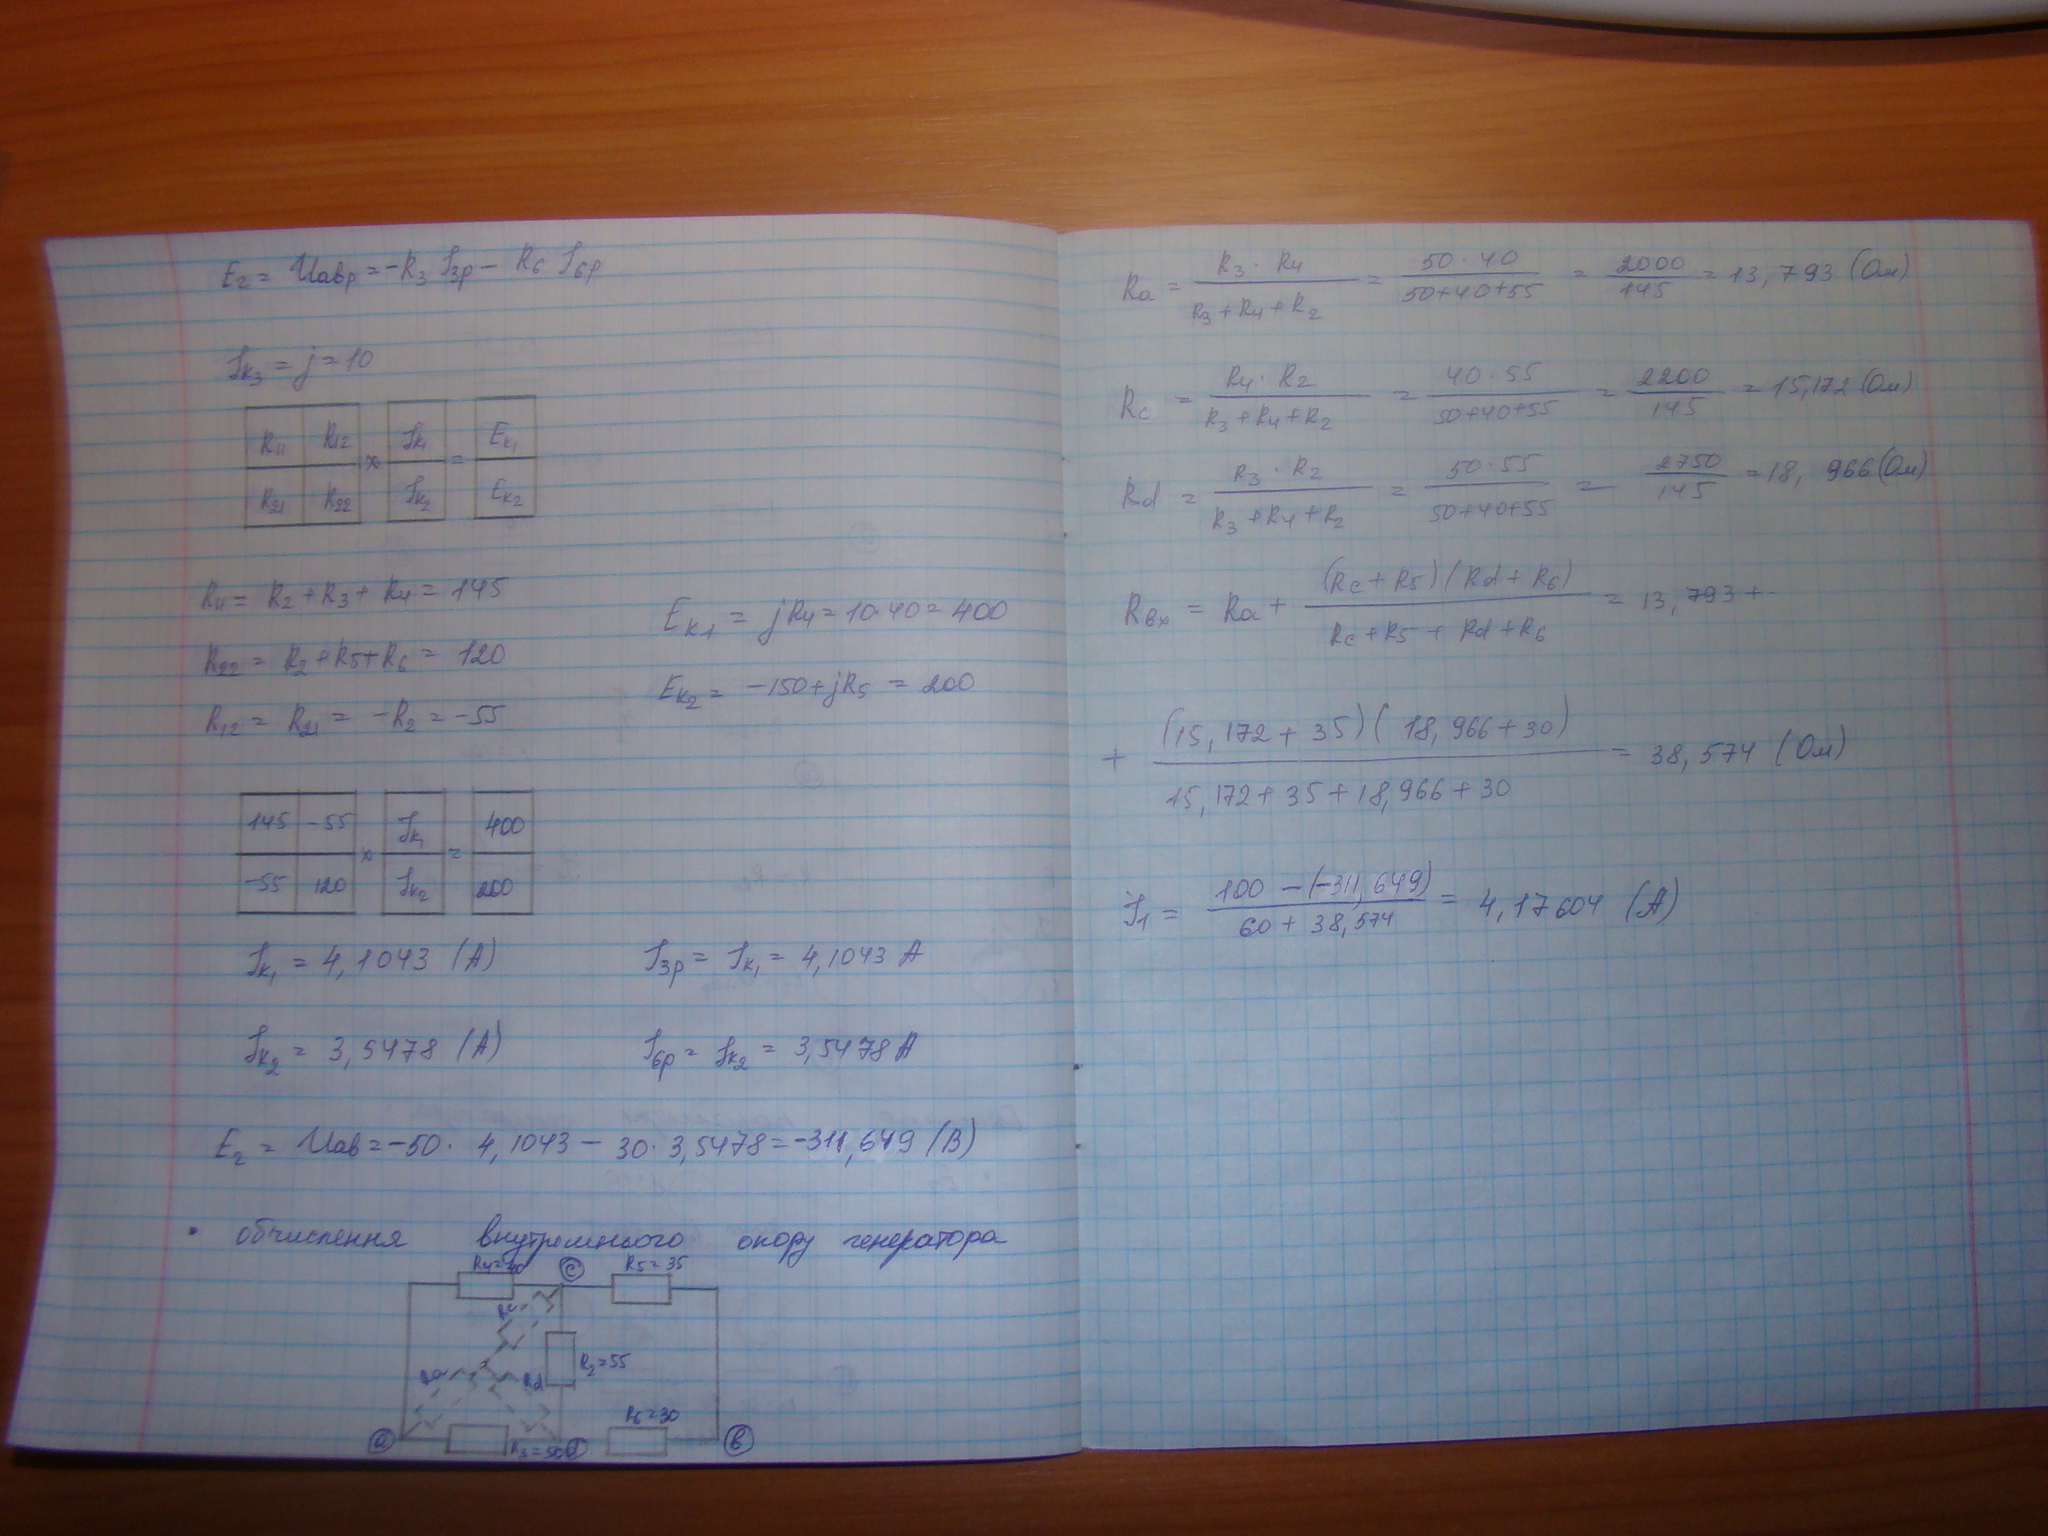 E₂ = Uавр = -R₃ I₃р - R₆ I₆р
Iк₃ = j = 10
R₁₁ R₁₂ × Iк₁ = Eк₁
R₂₁ R₂₂ Iк₂ Eк₂
R₁₁ = R₂ + R₃ + R₄ = 145
R₂₂ = R₂ + R₅ + R₆ = 120
R₁₂ = R₂₁ = -R₂ = -55
Eк₁ = jR₄ = 10·40 = 400
Eк₂ = -150 + jR₅ = 200
145 -55 × Iк₁ = 400
-55 120 Iк₂ 200
Iк₁ = 4,1043 (А) I₃р = Iк₁ = 4,1043 А
Iк₂ = 3,5478 (А) I₆р = Iк₂ = 3,5478 А
E₂ = Uав = -50 · 4,1043 - 30 · 3,5478 = -311,649 (В)
• обчислення внутрешнього опору генератора
R₄=40 c R₅=35
Rc
R₂=55
Ra Rd
R₆=30
a R₃=50 d в
Ra = R₃ · R₄ / R₃ + R₄ + R₂ = 50 · 40 / 50+40+55 = 2000 / 145 = 13,793 (Ом)
Rc = R₄ · R₂ / R₃ + R₄ + R₂ = 40 · 55 / 50+40+55 = 2200 / 145 = 15,172 (Ом)
Rd = R₃ · R₂ / R₃ + R₄ + R₂ = 50 · 55 / 50+40+55 = 2750 / 145 = 18,966 (Ом)
Rвх = Ra + (Rc + R₅)(Rd + R₆) / Rc + R₅ + Rd + R₆ = 13,793 +
+ (15,172 + 35)(18,966 + 30) / 15,172 + 35 + 18,966 + 30 = 38,574 (Ом)
I₁ = 100 - (-311,649) / 60 + 38,574 = 4,17604 (А)